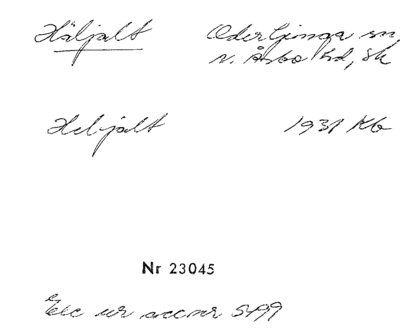 Häljalt Oderljunga sn,
N. Åsbo hd, Sk
Heljalt 1931 Kb
Nr 23045
Exc ur accnr 5499